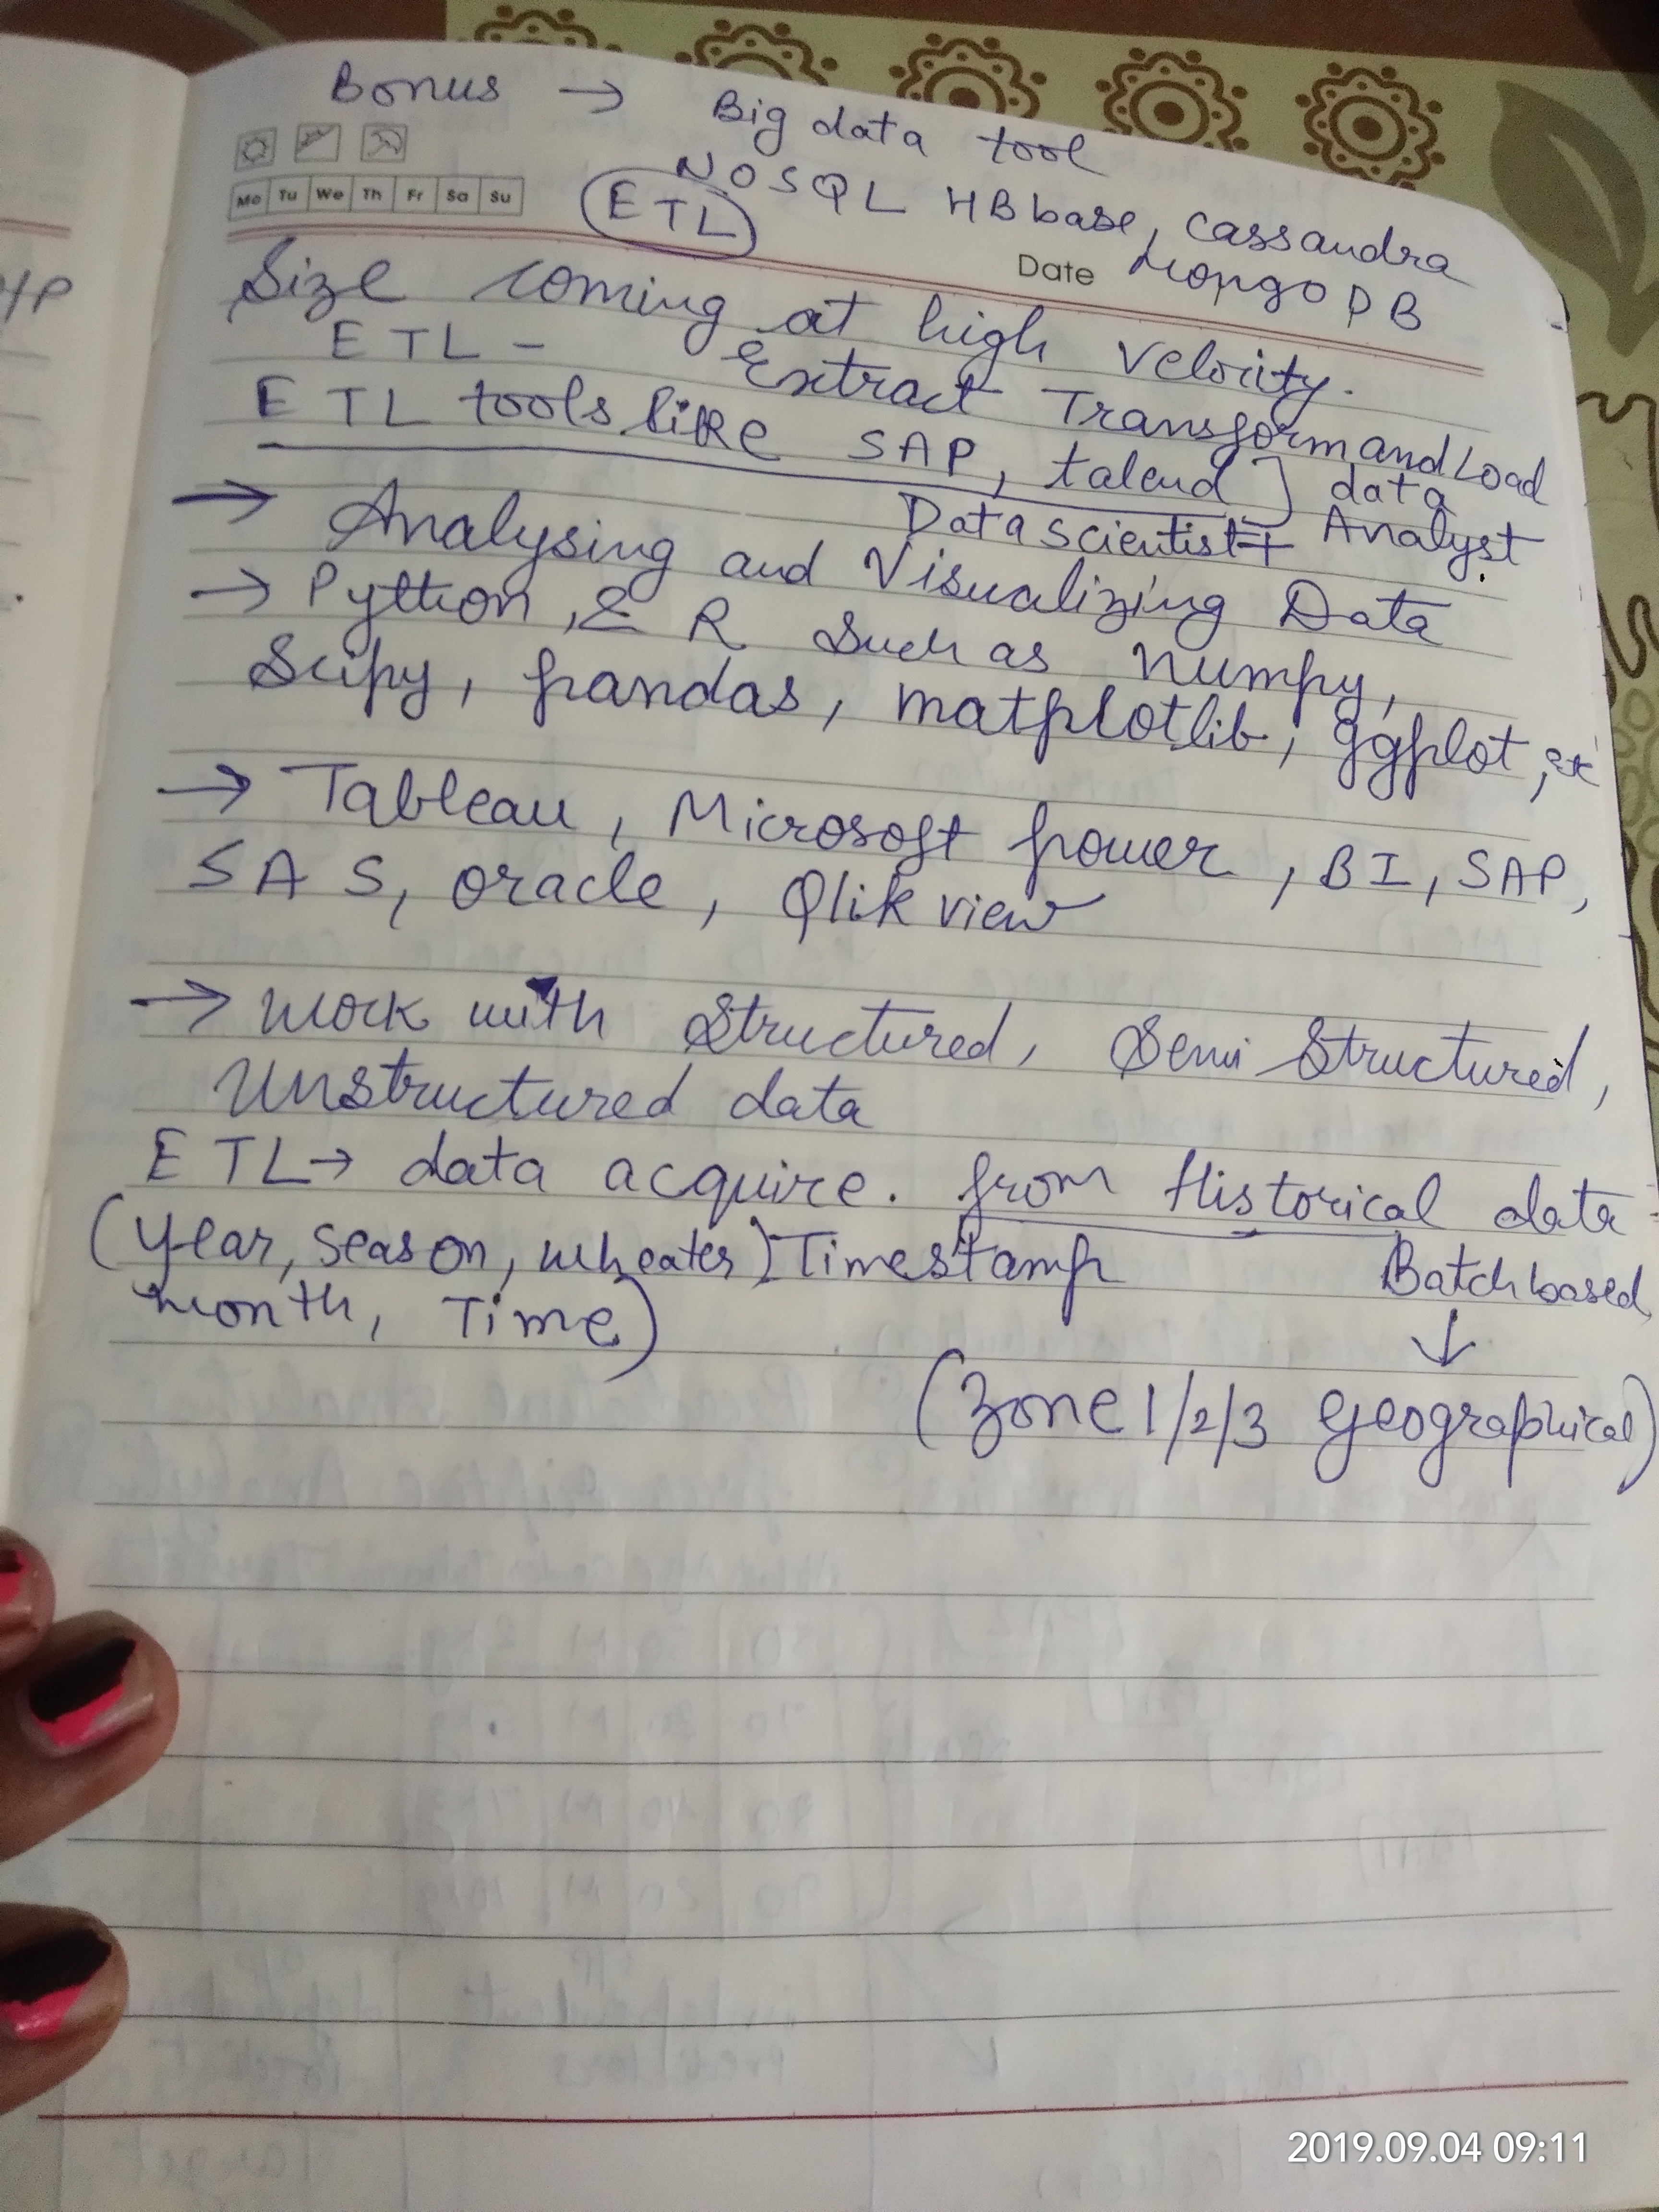 Bonus → Big data tool
NOSQL HBbase, Cassandra
MongoDB
ETL
Mo Tu We Th Fr Sa Su
Date
Size coming at high velocity.
ETL - Extract Transform and Load
ETL tools like SAP, talend] data
Data scientist + Analyst
→ Analysing and Visualizing Data
→ Python, & R Such as numpy,
Scipy, pandas, matplotlib, ggplot, etc
→ Tableau, Microsoft power, BI, SAP,
SAS, oracle, Qlik view
→ Work with Structured, Semi Structured,
Unstructured data
ETL → data acquire. from Historical data
(Year, season, wheater) Timestamp
Batch based
month, Time)
↓
(Zone 1/2/3 geographical)
2019.09.04 09:11